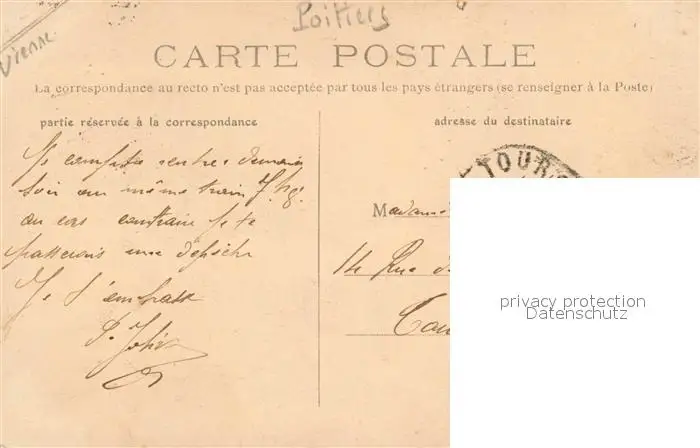 Poitiers
Vienne
CARTE POSTALE
La correspondance au recto n'est pas acceptée par tous les pays étrangers (se renseigner à la Poste)
partie réservée à la correspondance
adresse du destinataire
Je compte rentrer demain
soir au même train 7h
au cas contraire je te
passerais une dépêche
Je t'embrasse
TOURS
Madame
14 Rue
privacy protection
Datenschutz